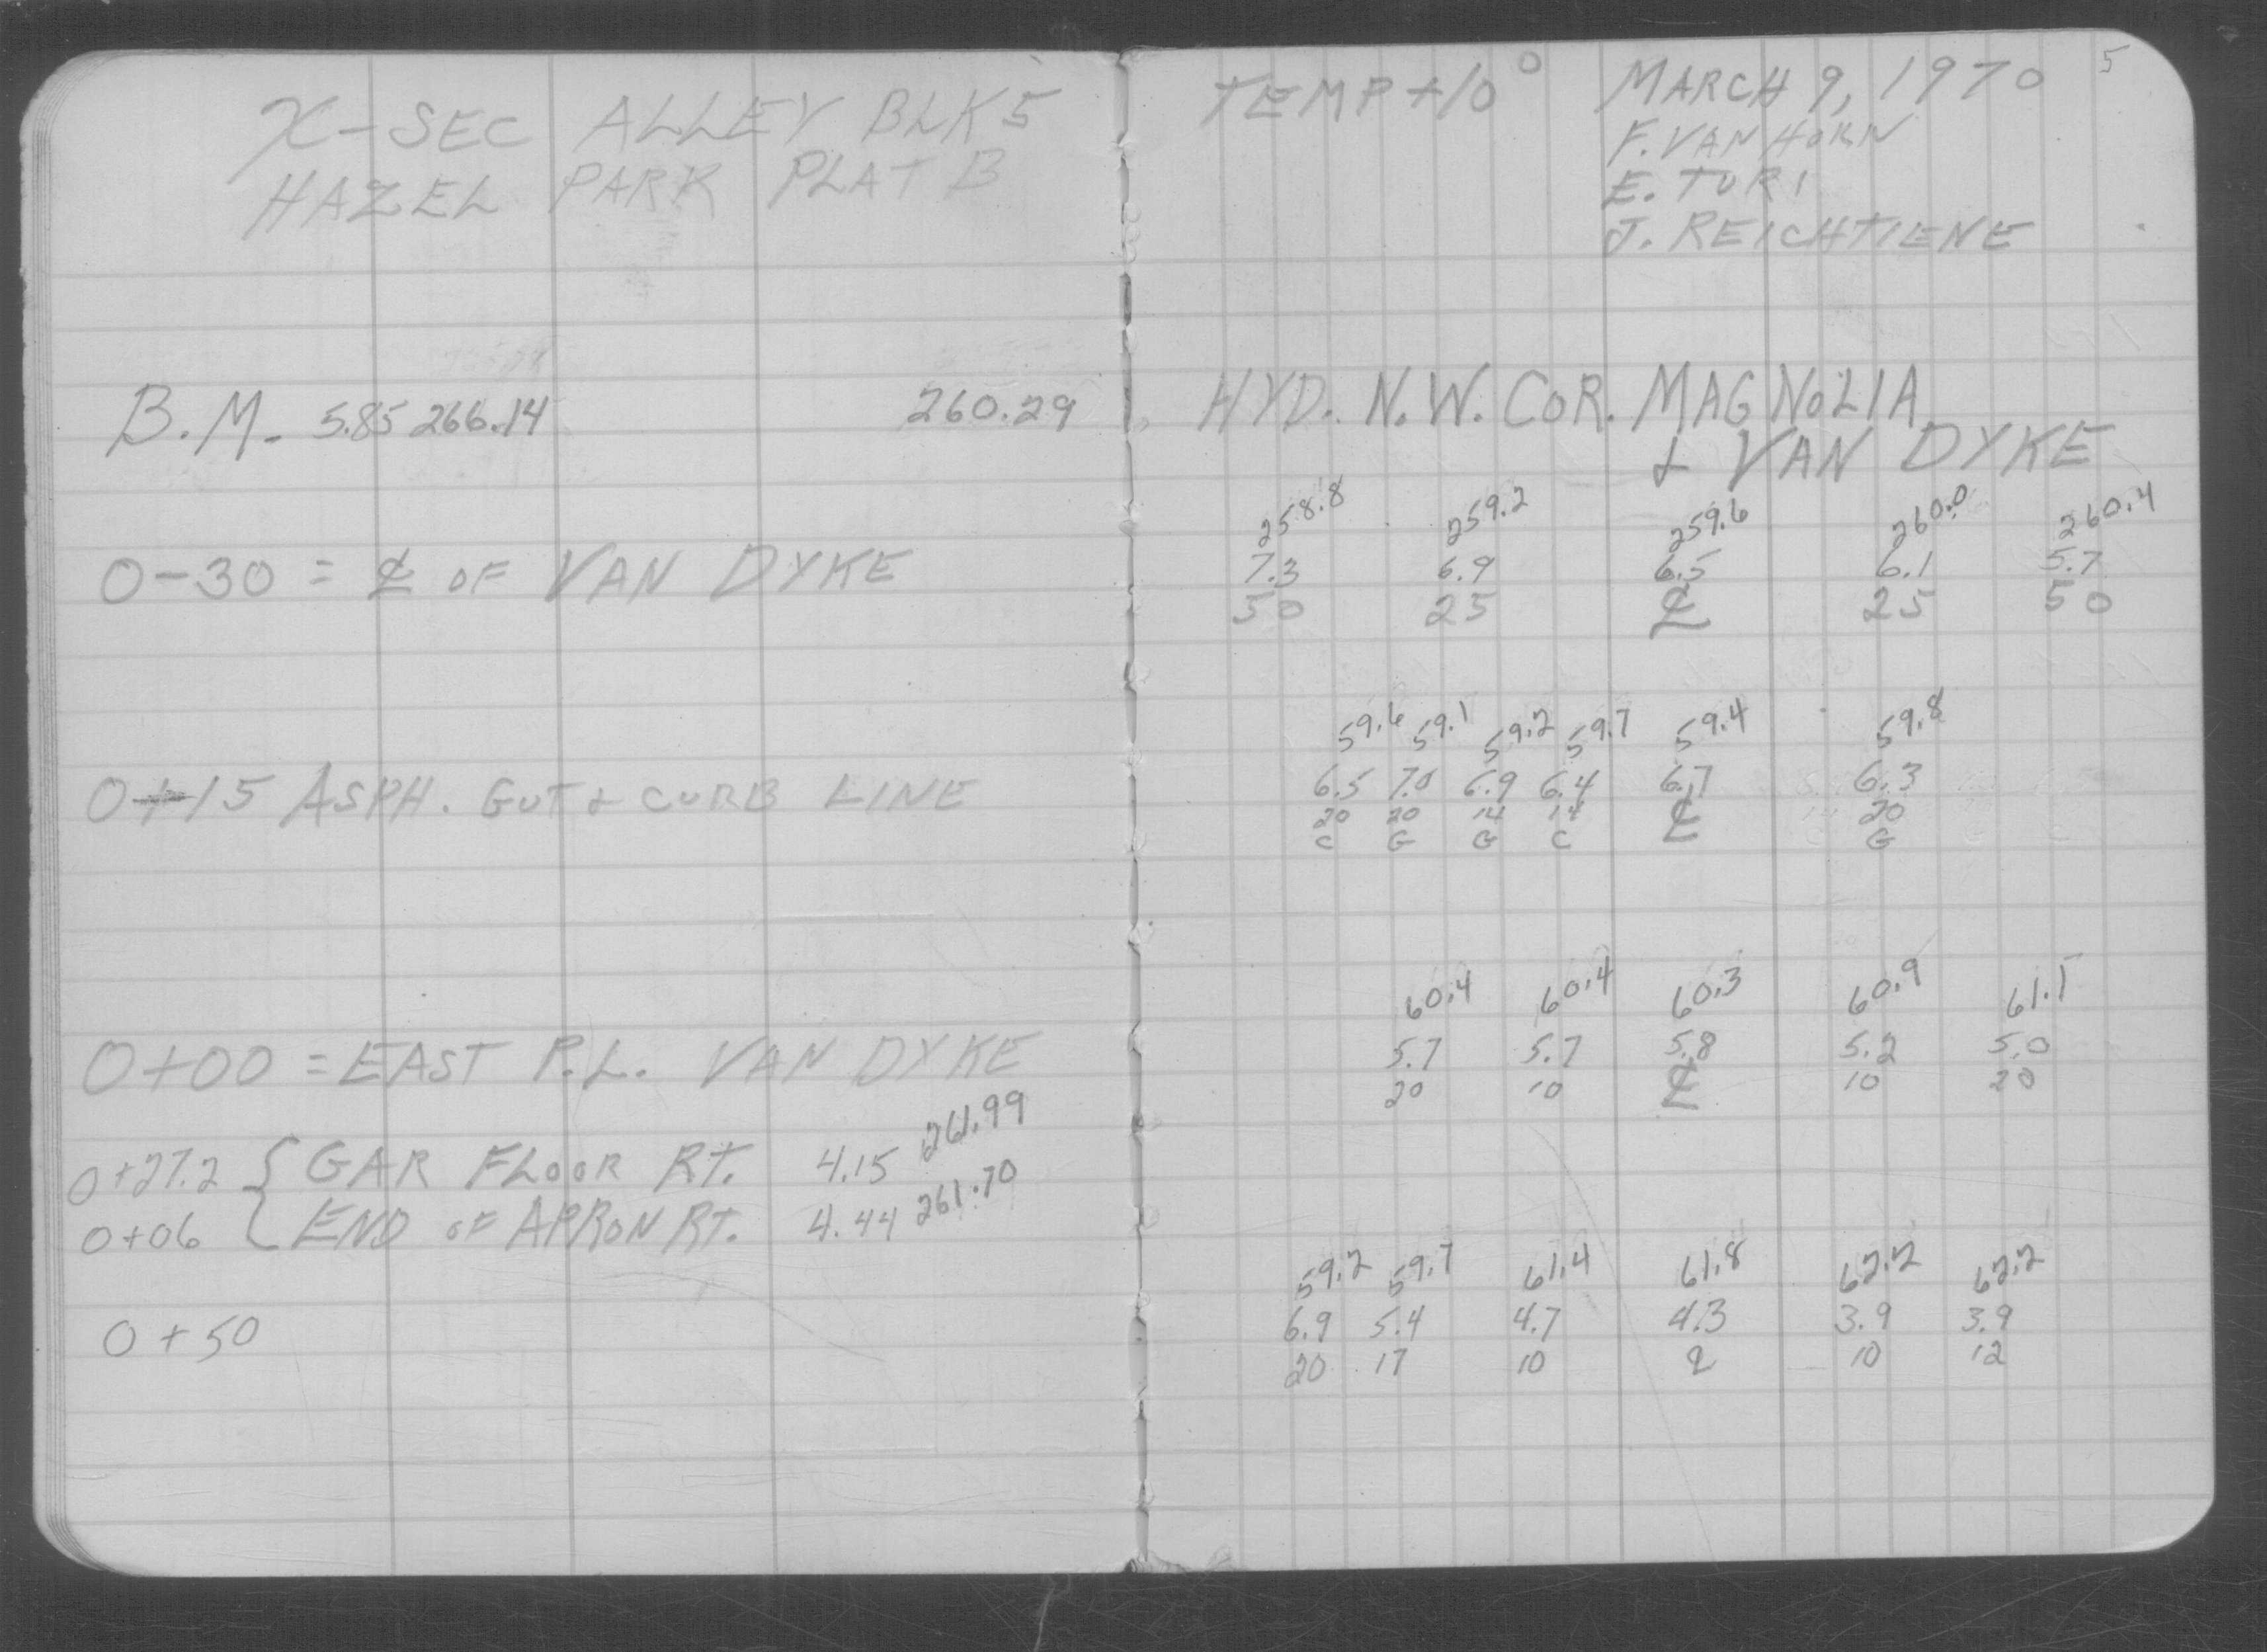 X-SEC ALLEY BLK 5
HAZEL PARK PLAT B
B.M. 5.85 266.14 260.29
0-30 = ℄ OF VAN DYKE
0+15 ASPH. GUT & CURB LINE
0+00 = EAST P.L. VAN DYKE
0+27.2 { GAR FLOOR RT. 4.15 261.99
0+06 { END OF APRON RT. 4.44 261.70
0+50
5
TEMP +10° MARCH 9, 1970
F. VAN HORN
E. TURI
J. REICHTIENE
HYD. N.W. COR. MAGNOLIA
& VAN DYKE
258.8 259.2 259.6 260.0 260.4
7.3 6.9 6.5 6.1 5.7
50 25 ℄ 25 50
59.6 59.1 59.2 59.7 59.4 59.8
6.5 7.0 6.9 6.4 6.7 6.3
20 20 14 14 ℄ 20
C G G C G
60.4 60.4 60.3 60.9 61.1
5.7 5.7 5.8 5.2 5.0
20 10 ℄ 10 20
59.2 59.7 61.4 61.8 62.2 62.2
6.9 5.4 4.7 4.3 3.9 3.9
20 17 10 ℄ 10 12